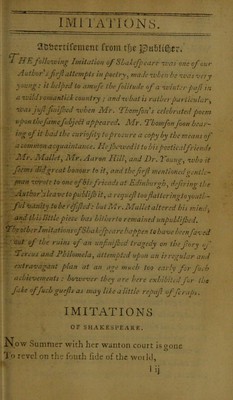 IMITATIONS.
Advertisement from the Publisher.
THE following Imitation of Shakespeare was one of our
Author's first attempts in poetry, made when he was very
young: it helped to amuse the solitude of a winter past in
a wild romantick country; and what is rather particular,
was just finished when Mr. Thomson's celebrated poem
upon the same subject appeared. Mr. Thomson soon hear-
ing of it had the curiosity to procure a copy by the means of
a common acquaintance. He shewed it to his poetical friends
Mr. Mallet, Mr. Aaron Hill, and Dr. Young, who it
seems did great honour to it, and the first mentioned gentle-
man wrote to one of his friends at Edinburgh, desiring the
Author's leave to publish it, a request too flattering to youth-
ful vanity to be resisted: but Mr. Mallet altered his mind,
and this little piece has hitherto remained unpublished.
The other Imitations of Shakespeare happen to have been saved
out of the ruins of an unfinished tragedy on the story of
Tereus and Philomela, attempted upon an irregular and
extravagant plan at an age much too early for such
achievements: however they are here exhibited for the
sake of such guests as may like a little repast of scraps.
IMITATIONS
OF SHAKESPEARE.
Now Summer with her wanton court is gone
To revel on the south side of the world,
I ij